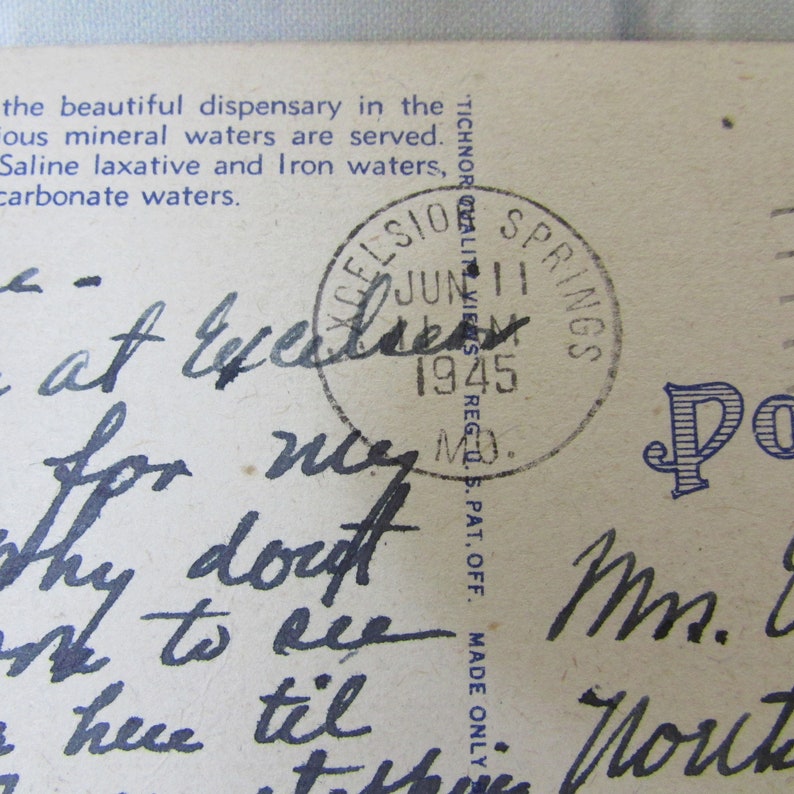 the beautiful dispensary in the
ious mineral waters are served.
Saline laxative and Iron waters,
carbonate waters.
TICHNOR QUALITY VIEWS REG. U. S. PAT. OFF. MADE ONLY
XCELSIOR SPRINGS
JUN 11
1945
MO.
at Excelsior
for my
why don't
to see
here til
Po
Mrs.